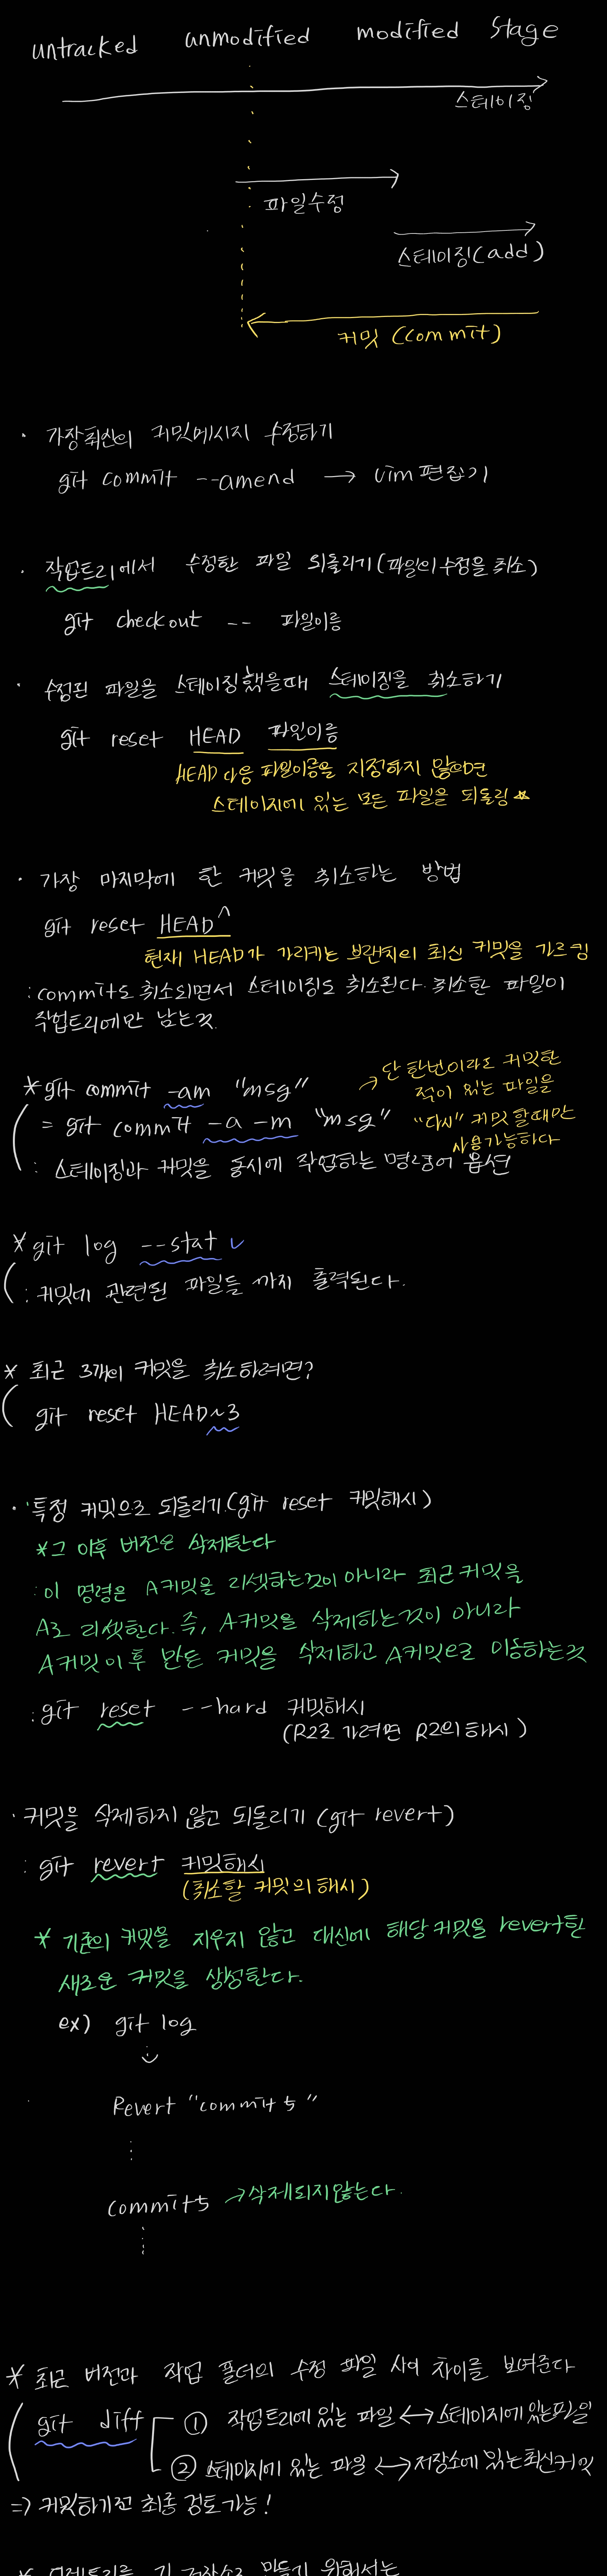 untracked unmodified modified stage
스테이징
파일수정
스테이징(add)
커밋 (commit)
· 가장최신의 커밋메시지 수정하기
git commit --amend → vim 편집기
· 작업트리에서 수정한 파일 되돌리기(파일의 수정을 취소)
git checkout -- 파일이름
· 수정된 파일을 스테이징했을때 스테이징을 취소하기
git reset HEAD 파일이름
HEAD 다음 파일이름을 지정하지 않으면
스테이지에 있는 모든 파일을 되돌림 ☆
· 가장 마지막에 한 커밋을 취소하는 방법
git reset HEAD^
현재 HEAD가 가리키는 브랜치의 최신 커밋을 가르킴
: commit도 취소되면서 스테이징도 취소된다. 취소한 파일이
작업트리에만 남는것.
*git commit -am "msg" → 단 한번이라도 커밋한
적이 있는 파일을
= git commit -a -m "msg" "다시" 커밋 할때만
사용가능하다
: 스테이징과 커밋을 동시에 작업하는 명령어 옵션
*git log --stat ✓
: 커밋에 관련된 파일들 까지 출력된다.
* 최근 3개의 커밋을 취소하려면?
git reset HEAD~3
· 특정 커밋으로 되돌리기.(git reset 커밋해시)
*그 이후 버전은 삭제한다
: 이 명령은 A커밋을 리셋하는것이 아니라 최근 커밋을
A로 리셋한다. 즉, A커밋을 삭제하는것이 아니라
A커밋 이후 만든 커밋을 삭제하고 A커밋으로 이동하는것
: git reset --hard 커밋해시
(R2로 가려면 R2의 해시)
· 커밋을 삭제하지 않고 되돌리기 (git revert)
: git revert 커밋해시
(취소할 커밋의 해시)
* 기존의 커밋을 지우지 않고 대신에 해당 커밋을 revert한
새로운 커밋을 생성한다.
ex) git log
Revert "commit 5"
commit5 → 삭제되지않는다.
* 최근 버전과 작업 폴더의 수정 파일 사이 차이를 보여준다
git diff ① 작업트리에 있는 파일 ↔ 스테이지에 있는파일
② 스테이지에 있는 파일 ↔ 저장소에 있는최신커밋
=> 커밋하기전 최종 검토가능!